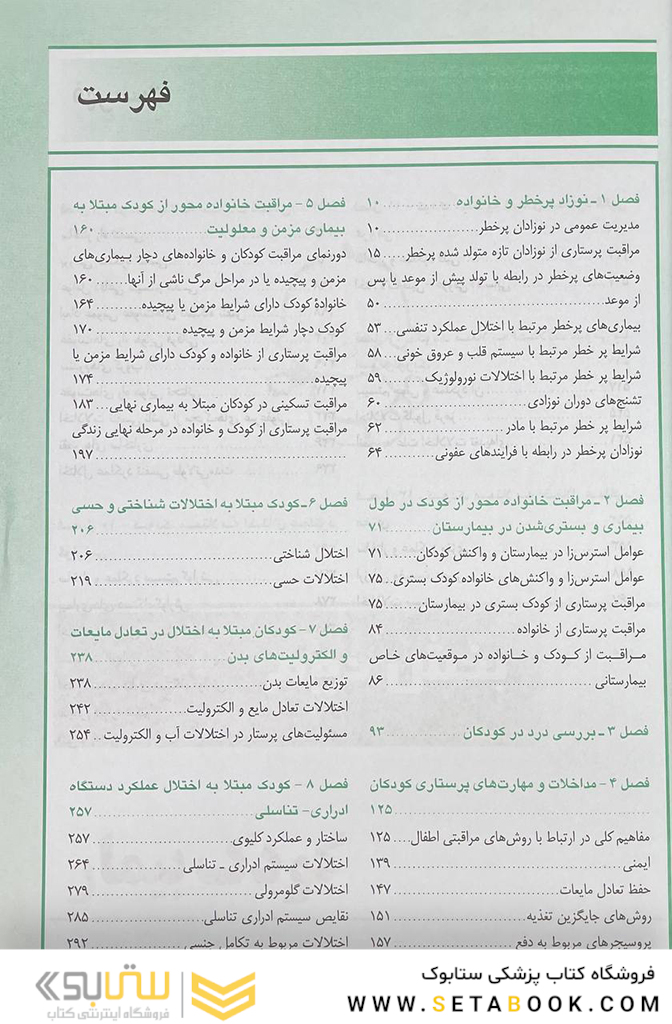 فهرست
فصل ۱ - نوزاد پرخطر و خانواده ..... ۱۰
مدیریت عمومی در نوزادان پرخطر ..... ۱۰
مراقبت پرستاری از نوزادان تازه متولد شده پرخطر ..... ۱۵
وضعیت‌های پرخطر در رابطه با تولد پیش از موعد یا پس
از موعد ..... ۵۰
بیماری‌های پرخطر مرتبط با اختلال عملکرد تنفسی ... ۵۳
شرایط پر خطر مرتبط با سیستم قلب و عروق خونی ... ۵۸
شرایط پر خطر مرتبط با اختلالات نورولوژیک ..... ۵۹
تشنج‌های دوران نوزادی ..... ۶۰
شرایط پر خطر مرتبط با مادر ..... ۶۲
نوزادان پرخطر در رابطه با فرایندهای عفونی ..... ۶۴
فصل ۲ - مراقبت خانواده محور از کودک در طول
بیماری و بستری‌شدن در بیمارستان ..... ۷۱
عوامل استرس‌زا در بیمارستان و واکنش کودکان ..... ۷۱
عوامل استرس‌زا و واکنش‌های خانواده کودک بستری .. ۷۵
مراقبت پرستاری از کودک بستری در بیمارستان ..... ۷۵
مراقبت پرستاری از خانواده ..... ۸۴
مراقبت از کودک و خانواده در موقعیت‌های خاص
بیمارستانی ..... ۸۶
فصل ۳ - بررسی درد در کودکان ..... ۹۳
فصل ۴ - مداخلات و مهارت‌های پرستاری کودکان
..... ۱۲۵
مفاهیم کلی در ارتباط با روش‌های مراقبتی اطفال .... ۱۲۵
ایمنی ..... ۱۳۹
حفظ تعادل مایعات ..... ۱۴۷
روش‌های جایگزین تغذیه ..... ۱۵۱
پروسیجرهای مربوط به دفع ..... ۱۵۷
فصل ۵ - مراقبت خانواده محور از کودک مبتلا به
بیماری مزمن و معلولیت ..... ۱۶۰
دورنمای مراقبت کودکان و خانواده‌های دچار بیماری‌های
مزمن و پیچیده یا در مراحل مرگ ناشی از آنها ..... ۱۶۰
خانوادهٔ کودک دارای شرایط مزمن یا پیچیده ..... ۱۶۴
کودک دچار شرایط مزمن و پیچیده ..... ۱۷۰
مراقبت پرستاری از خانواده و کودک دارای شرایط مزمن یا
پیچیده ..... ۱۷۴
مراقبت تسکینی در کودکان مبتلا به بیماری نهایی .... ۱۸۳
مراقبت پرستاری از کودک و خانواده در مرحله نهایی زندگی
..... ۱۹۷
فصل ۶ - کودک مبتلا به اختلالات شناختی و حسی
..... ۲۰۶
اختلال شناختی ..... ۲۰۶
اختلالات حسی ..... ۲۱۹
فصل ۷ - کودکان مبتلا به اختلال در تعادل مایعات
و الکترولیت‌های بدن ..... ۲۳۸
توزیع مایعات بدن ..... ۲۳۸
اختلالات تعادل مایع و الکترولیت ..... ۲۴۲
مسئولیت‌های پرستار در اختلالات آب و الکترولیت .. ۲۵۴
فصل ۸ - کودک مبتلا به اختلال عملکرد دستگاه
ادراری - تناسلی ..... ۲۵۷
ساختار و عملکرد کلیوی ..... ۲۵۷
اختلالات سیستم ادراری ـ تناسلی ..... ۲۶۴
اختلالات گلومرولی ..... ۲۷۹
نقایص سیستم ادراری تناسلی ..... ۲۸۵
اختلالات مربوط به تکامل جنسی ..... ۲۹۲
فروشگاه کتاب پزشکی ستابوک
WWW.SETABOOK.COM
ستابوک
فروشگاه اینترنتی کتاب